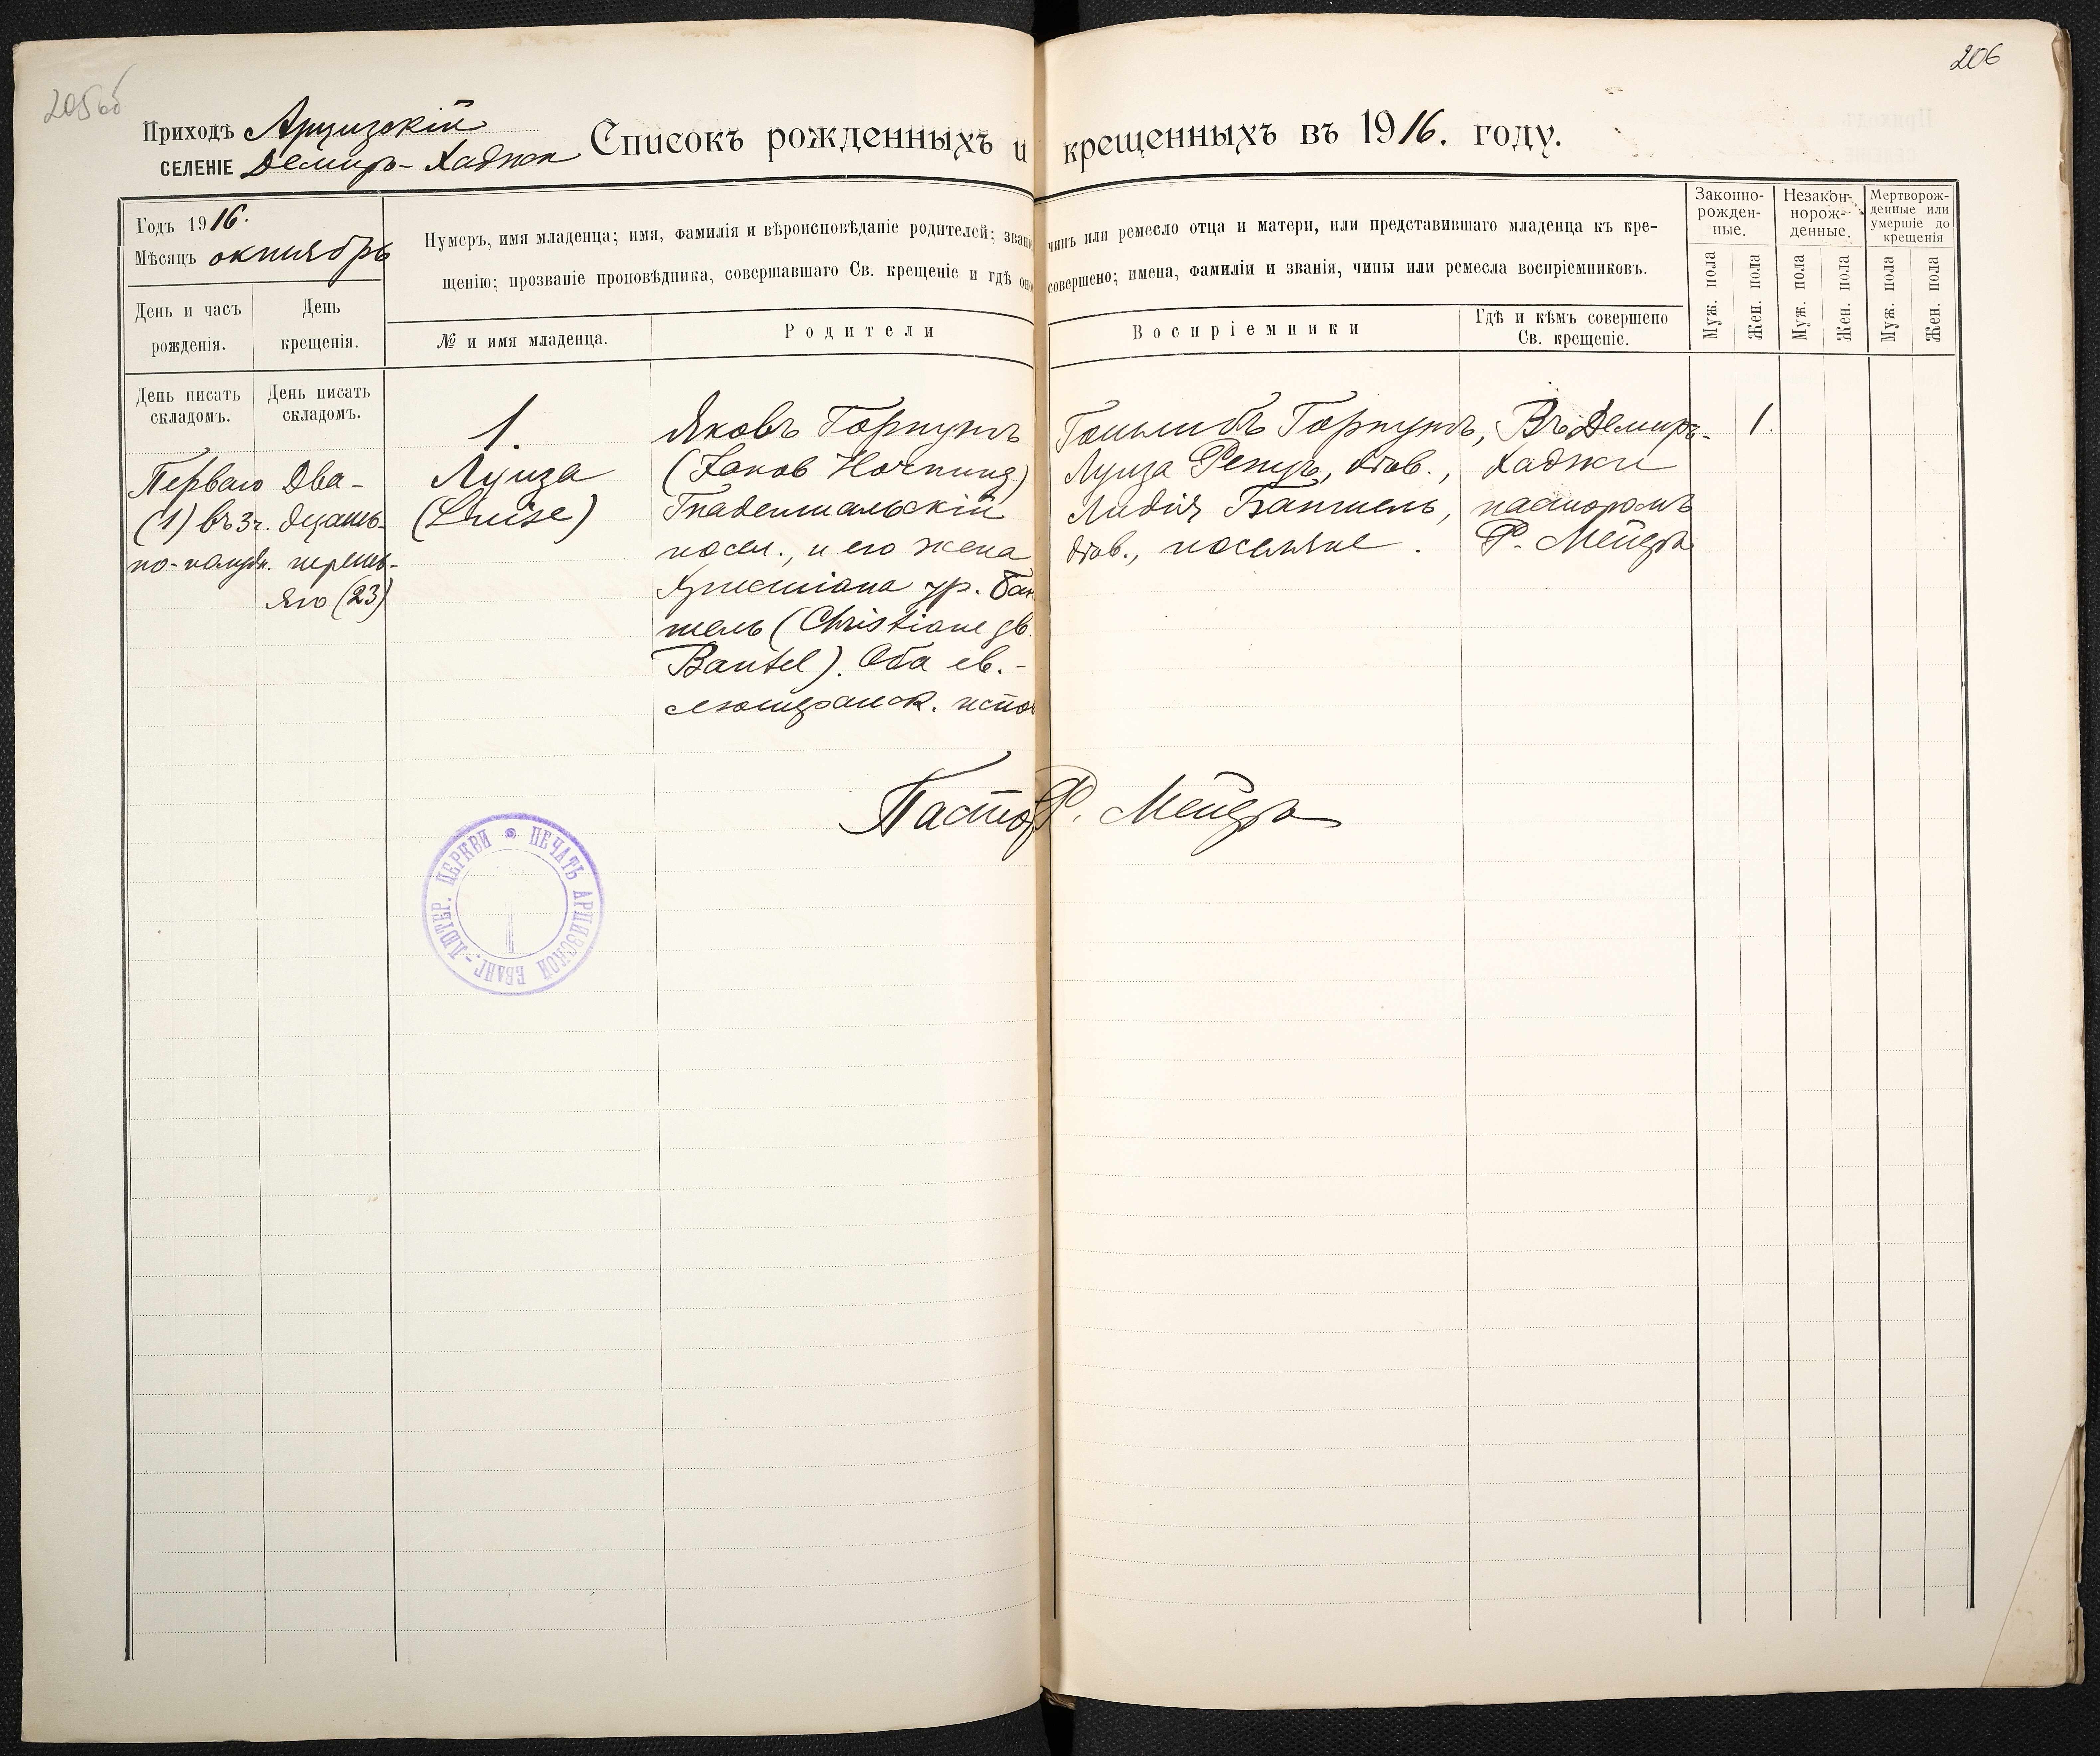 205об
206
Приходъ Арцизскій
СЕЛЕНІЕ Демиръ-Хаджи
Списокъ рожденныхъ и крещенныхъ въ 1916. году.
Годъ 1916.
Мѣсяцъ октябрь
День и часъ рожденія.
День крещенія.
Нумеръ, имя младенца; имя, фамилія и вѣроисповѣданіе родителей; званіе чинъ или ремесло отца и матери, или представившаго младенца къ кре-
щенію; прозваніе проповѣдника, совершавшаго Св. крещеніе и гдѣ оно совершено; имена, фамиліи и званія, чины или ремесла воспріемниковъ.
№ и имя младенца.
Родители
Воспріемники
Гдѣ и кѣмъ совершено
Св. крещеніе.
Законно-
рожден-
ные.
Незакон-
норож-
денные.
Мертворож-
денные или
умершіе до
крещенія
Муж. пола
Жен. пола
Муж. пола
Жен. пола
Муж. пола
Жен. пола
День писать
складомъ.
День писать
складомъ.
Перваго
(1) въ 3 ч.
по-полудн.
Два-
дцать-
третья-
яго (23)
1.
Луиза
(Luise)
Яковъ Горнунгъ
(Jakob Hornung)
Гнаденталльскій
посел., и его жена
Христіана ур. Бан
тель (Christiane gb.
Bantel). Оба ев.-
лютеранск. испов
Готлибъ Горнунгъ,
Луиза Ренцъ, дѣв.,
Лидія Бантель,
дѣв., поселяне.
Въ Демиръ-
Хаджи
пасторомъ
Р. Мейеръ
1.
Пасторъ Р. Мейеръ
ПЕЧАТЬ АРЦИЗСКОЙ ЕВАНГ.-ЛЮТЕР. ЦЕРКВИ